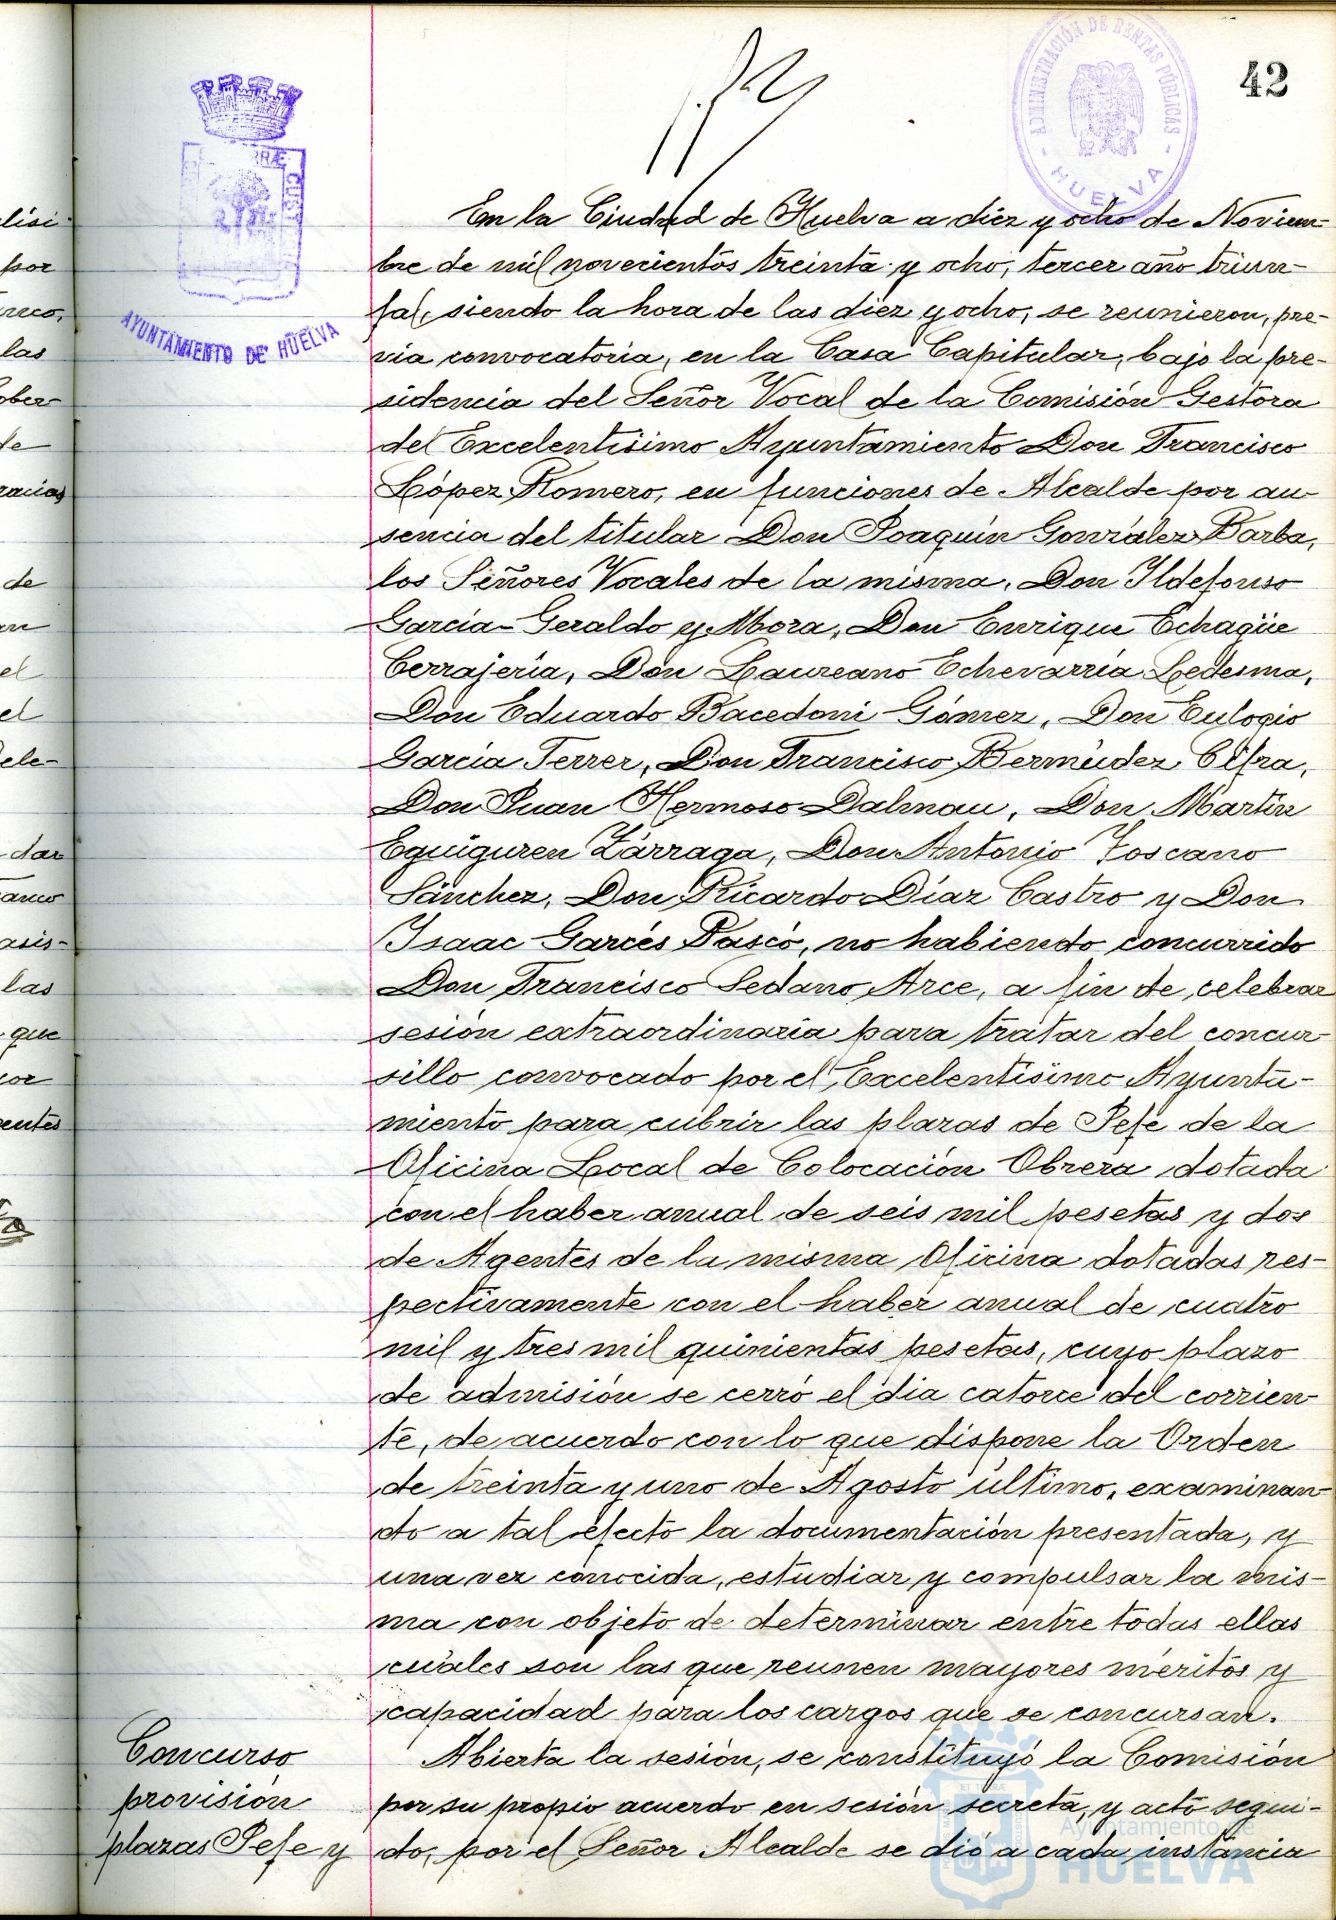 42
ADMINISTRACIÓN DE RENTAS PÚBLICAS
HUELVA
AYUNTAMIENTO DE HUELVA
En la Ciudad de Huelva a diez y ocho de Noviem-
bre de mil novecientos treinta y ocho, tercer año triun-
fal, siendo la hora de las diez y ocho, se reunieron, pre-
via convocatoria, en la Casa Capitular, bajo la pre-
sidencia del Señor Vocal de la Comisión Gestora
del Excelentisimo Ayuntamiento Don Francisco
López Romero, en funciones de Alcalde por au-
sencia del titular Don Joaquín González Barba,
los Señores Vocales de la misma, Don Ildefonso
García-Geraldo y Mora, Don Enrique Echagüe
Cerrajería, Don Laureano Echevarría Ledesma,
Don Eduardo Bacedoni Gómez, Don Eulogio
García Ferrer, Don Francisco Bermúdez Cifra,
Don Juan Hermoso Dalmau, Don Martín
Eguiguren Zárraga, Don Antonio Toscano
Sánchez, Don Ricardo Díaz Castro y Don
Isaac Garcés Pascó, no habiendo concurrido
Don Francisco Sedano Arce, a fin de celebrar
sesión extraordinaria para tratar del concur-
sillo convocado por el Excelentísimo Ayunta-
miento para cubrir las plazas de Jefe de la
Oficina Local de Colocación Obrera dotada
con el haber anual de seis mil pesetas y dos
de Agentes de la misma Oficina dotadas res-
pectivamente con el haber anual de cuatro
mil y tres mil quinientas pesetas, cuyo plazo
de admisión se cerró el dia catorce del corrien-
te, de acuerdo con lo que dispone la Orden
de treinta y uno de Agosto último, examinan-
do a tal efecto la documentación presentada, y
una vez conocida, estudiar y compulsar la mis-
ma con objeto de determinar entre todas ellas
cuáles son las que reunen mayores méritos y
capacidad para los cargos que se concursan.
Concurso
provisión
plazas Jefe y
Abierta la sesión, se constituyó la Comisión
por su propio acuerdo en sesión secreta, y acto segui-
do, por el Señor Alcalde se dió a cada instancia
Ayuntamiento de
HUELVA